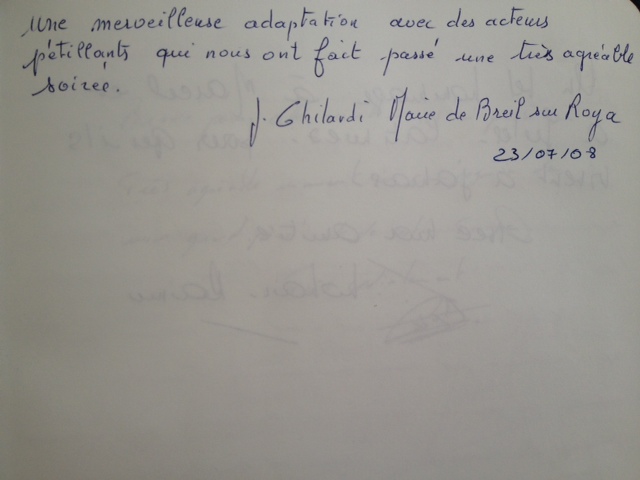 Une merveilleuse adaptation avec des acteurs
pétillants qui nous ont fait passé une très agréable
soirée.
J. Ghilardi Maire de Breil sur Roya
23/07/08